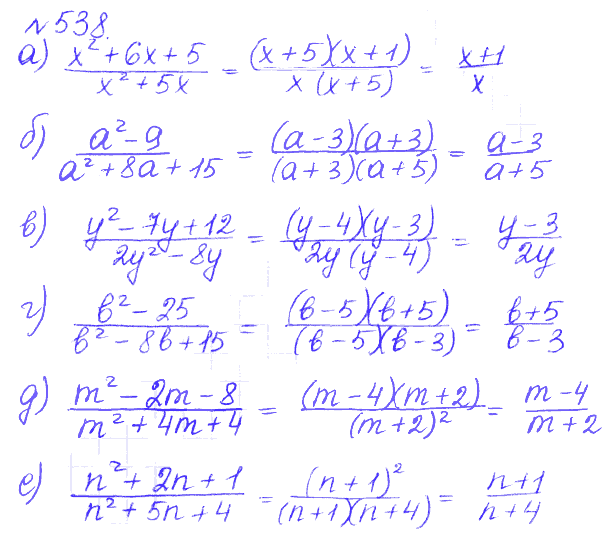 № 538.
а) x² + 6x + 5 / x² + 5x = (x + 5)(x + 1) / x (x + 5) = x + 1 / x
б) a² − 9 / a² + 8a + 15 = (a − 3)(a + 3) / (a + 3)(a + 5) = a − 3 / a + 5
в) y² − 7y + 12 / 2y² − 8y = (y − 4)(y − 3) / 2y (y − 4) = y − 3 / 2y
г) b² − 25 / b² − 8b + 15 = (b − 5)(b + 5) / (b − 5)(b − 3) = b + 5 / b − 3
д) m² − 2m − 8 / m² + 4m + 4 = (m − 4)(m + 2) / (m + 2)² = m − 4 / m + 2
е) n² + 2n + 1 / n² + 5n + 4 = (n + 1)² / (n + 1)(n + 4) = n + 1 / n + 4